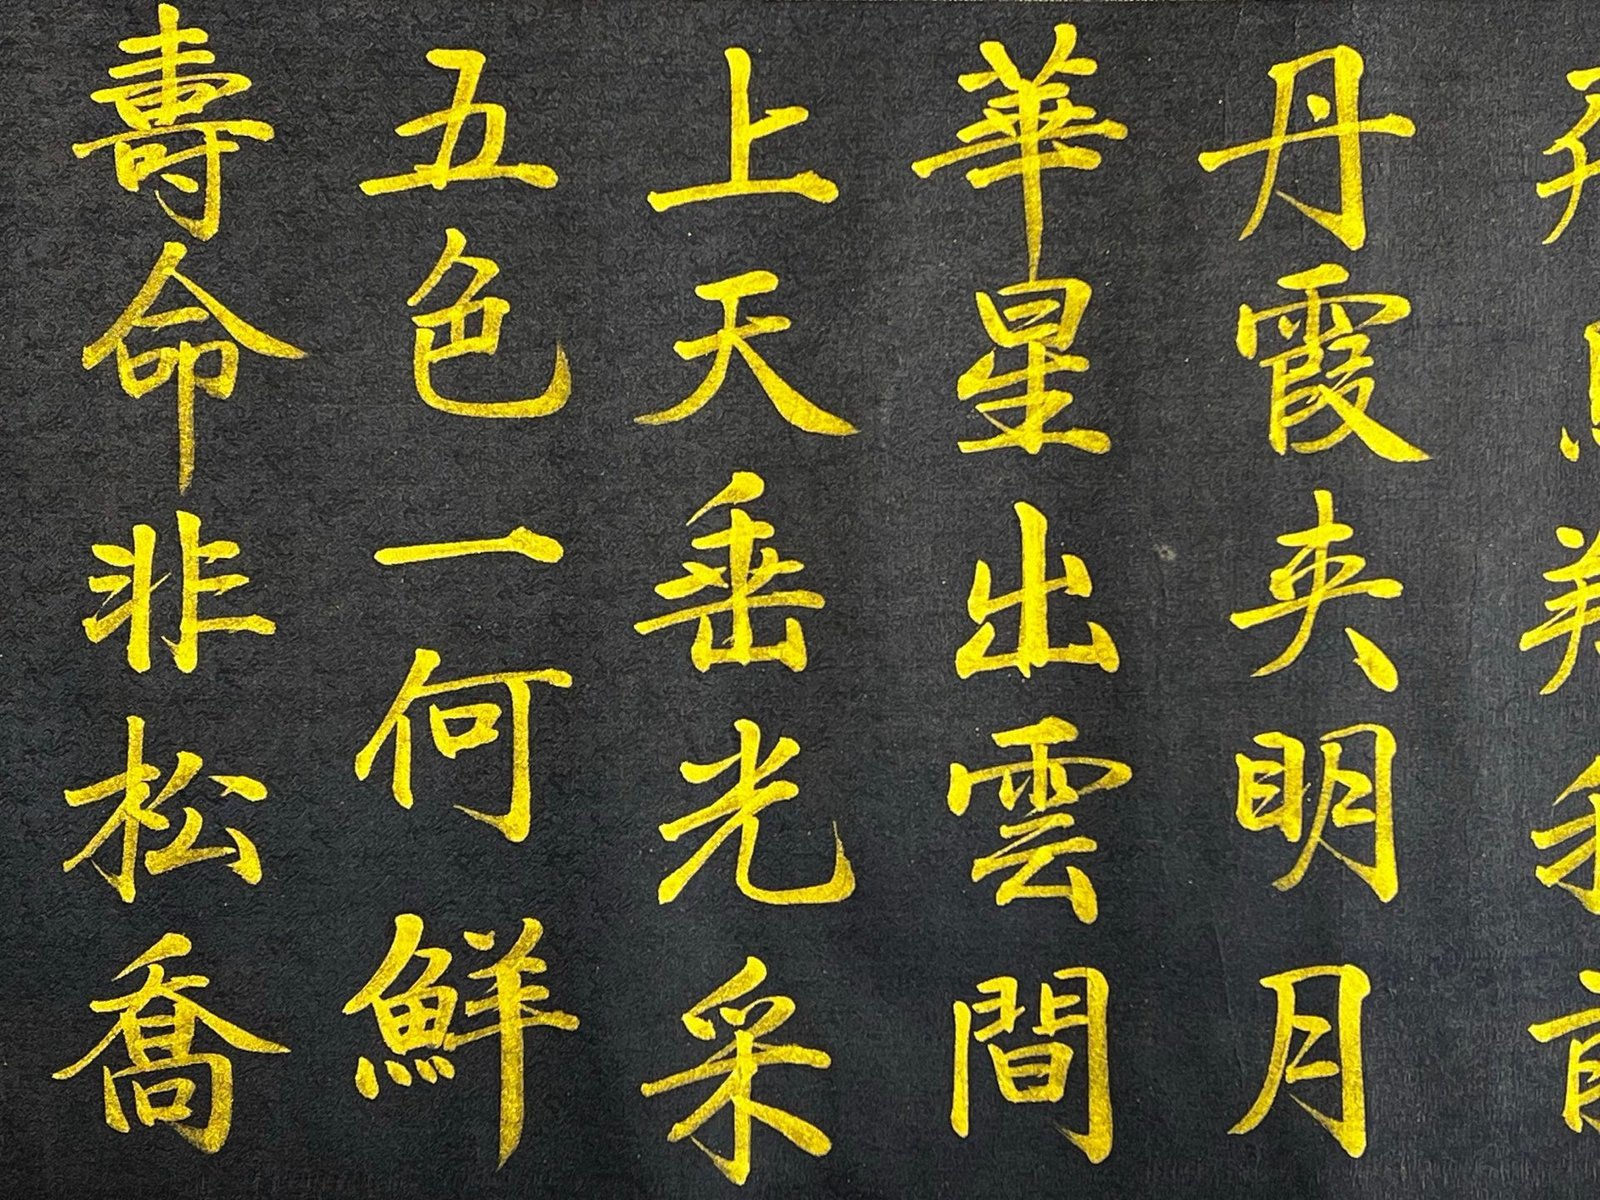 丹霞夾明月
華星出雲間
上天垂光采
五色一何鮮
壽命非松喬